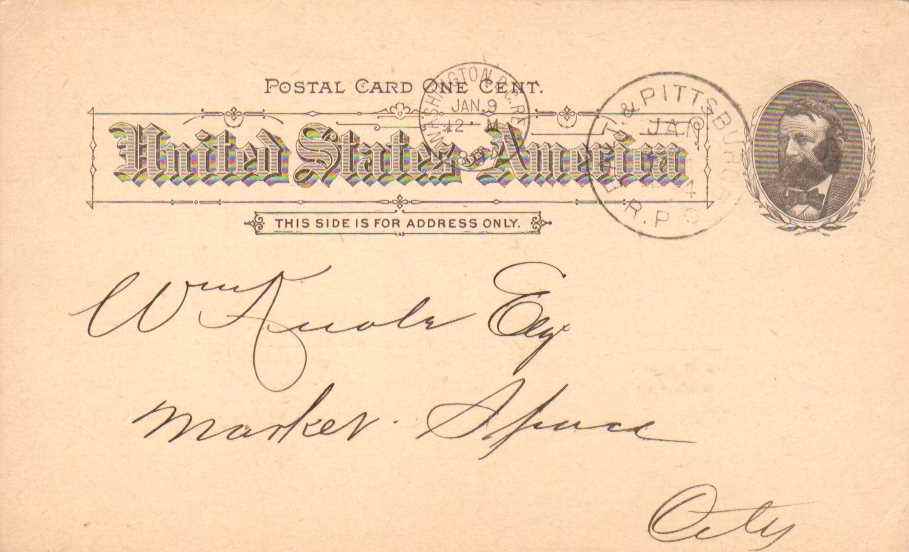 POSTAL CARD ONE CENT.
United States America
THIS SIDE IS FOR ADDRESS ONLY.
WASHINGTON, D.C. REC'D
JAN 9
12 M
& PITTSBURG
JAN 9
R.P.O.
Wm Esq
Market Space
City